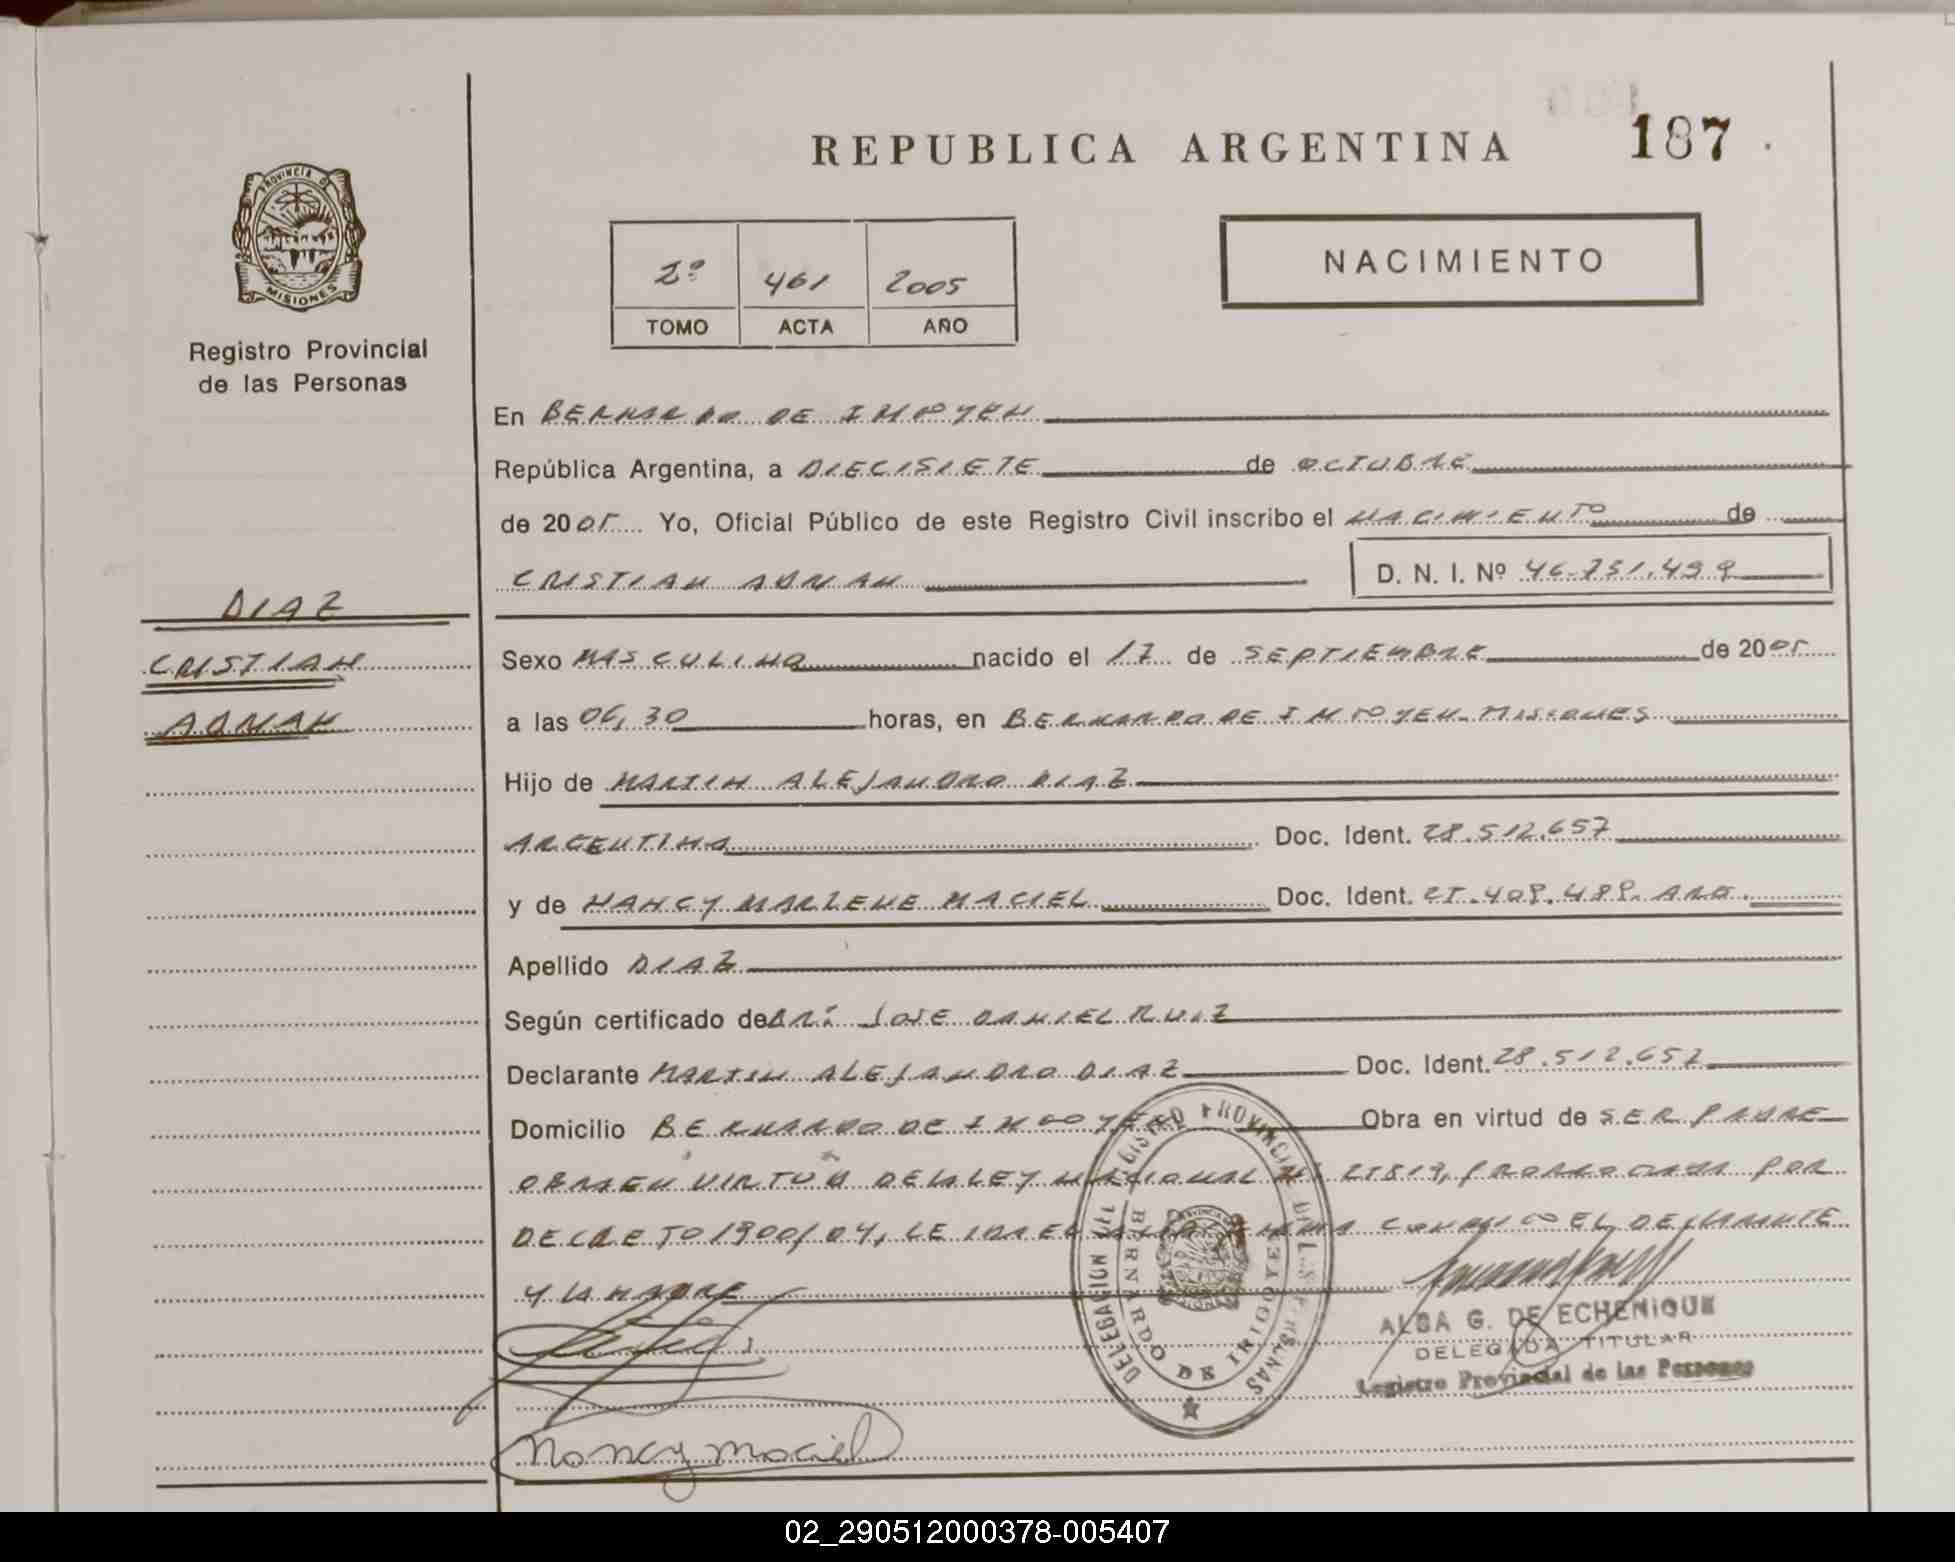 REPUBLICA ARGENTINA
187
PROVINCIA DE
MISIONES
Registro Provincial
de las Personas
2º 461 2005
TOMO ACTA AÑO
NACIMIENTO
En BERNARDO DE IRIGOYEN
República Argentina, a DIECISIETE de OCTUBRE
de 2005 Yo, Oficial Público de este Registro Civil inscribo el NACIMIENTO de
CRISTIAN ADRIAN
D. N. I. Nº 46.751.499
DIAZ
CRISTIAN
ADRIAN
Sexo MASCULINO nacido el 17 de SEPTIEMBRE de 2005
a las 06,30 horas, en BERNARDO DE IRIGOYEN-MISIONES
Hijo de MARTIN ALEJANDRO DIAZ
ARGENTINO Doc. Ident. 28.512.657
y de NANCY MARLENE MACIEL Doc. Ident. ARG.
Apellido DIAZ
Según certificado de DR: JOSE DANIEL RUIZ
Declarante MARTIN ALEJANDRO DIAZ Doc. Ident. 28.512.657
Domicilio BERNARDO DE IRIGOYEN Obra en virtud de SER PADRE
OBRA EN VIRTUD DE LA LEY NACIONAL Nº 25819, PRORROGADA POR
DECRETO 1900/04, LE IDA EL ACTA FIRMA CONMIGO EL DECLARANTE
Y LA MADRE
DELEGACION DEL REGISTRO PROVINCIAL DE LAS PERSONAS
BERNARDO DE IRIGOYEN
ALBA G. DE ECHENIQUE
DELEGADA TITULAR
Registro Provincial de las Personas
Nancy maciel
02_290512000378-005407